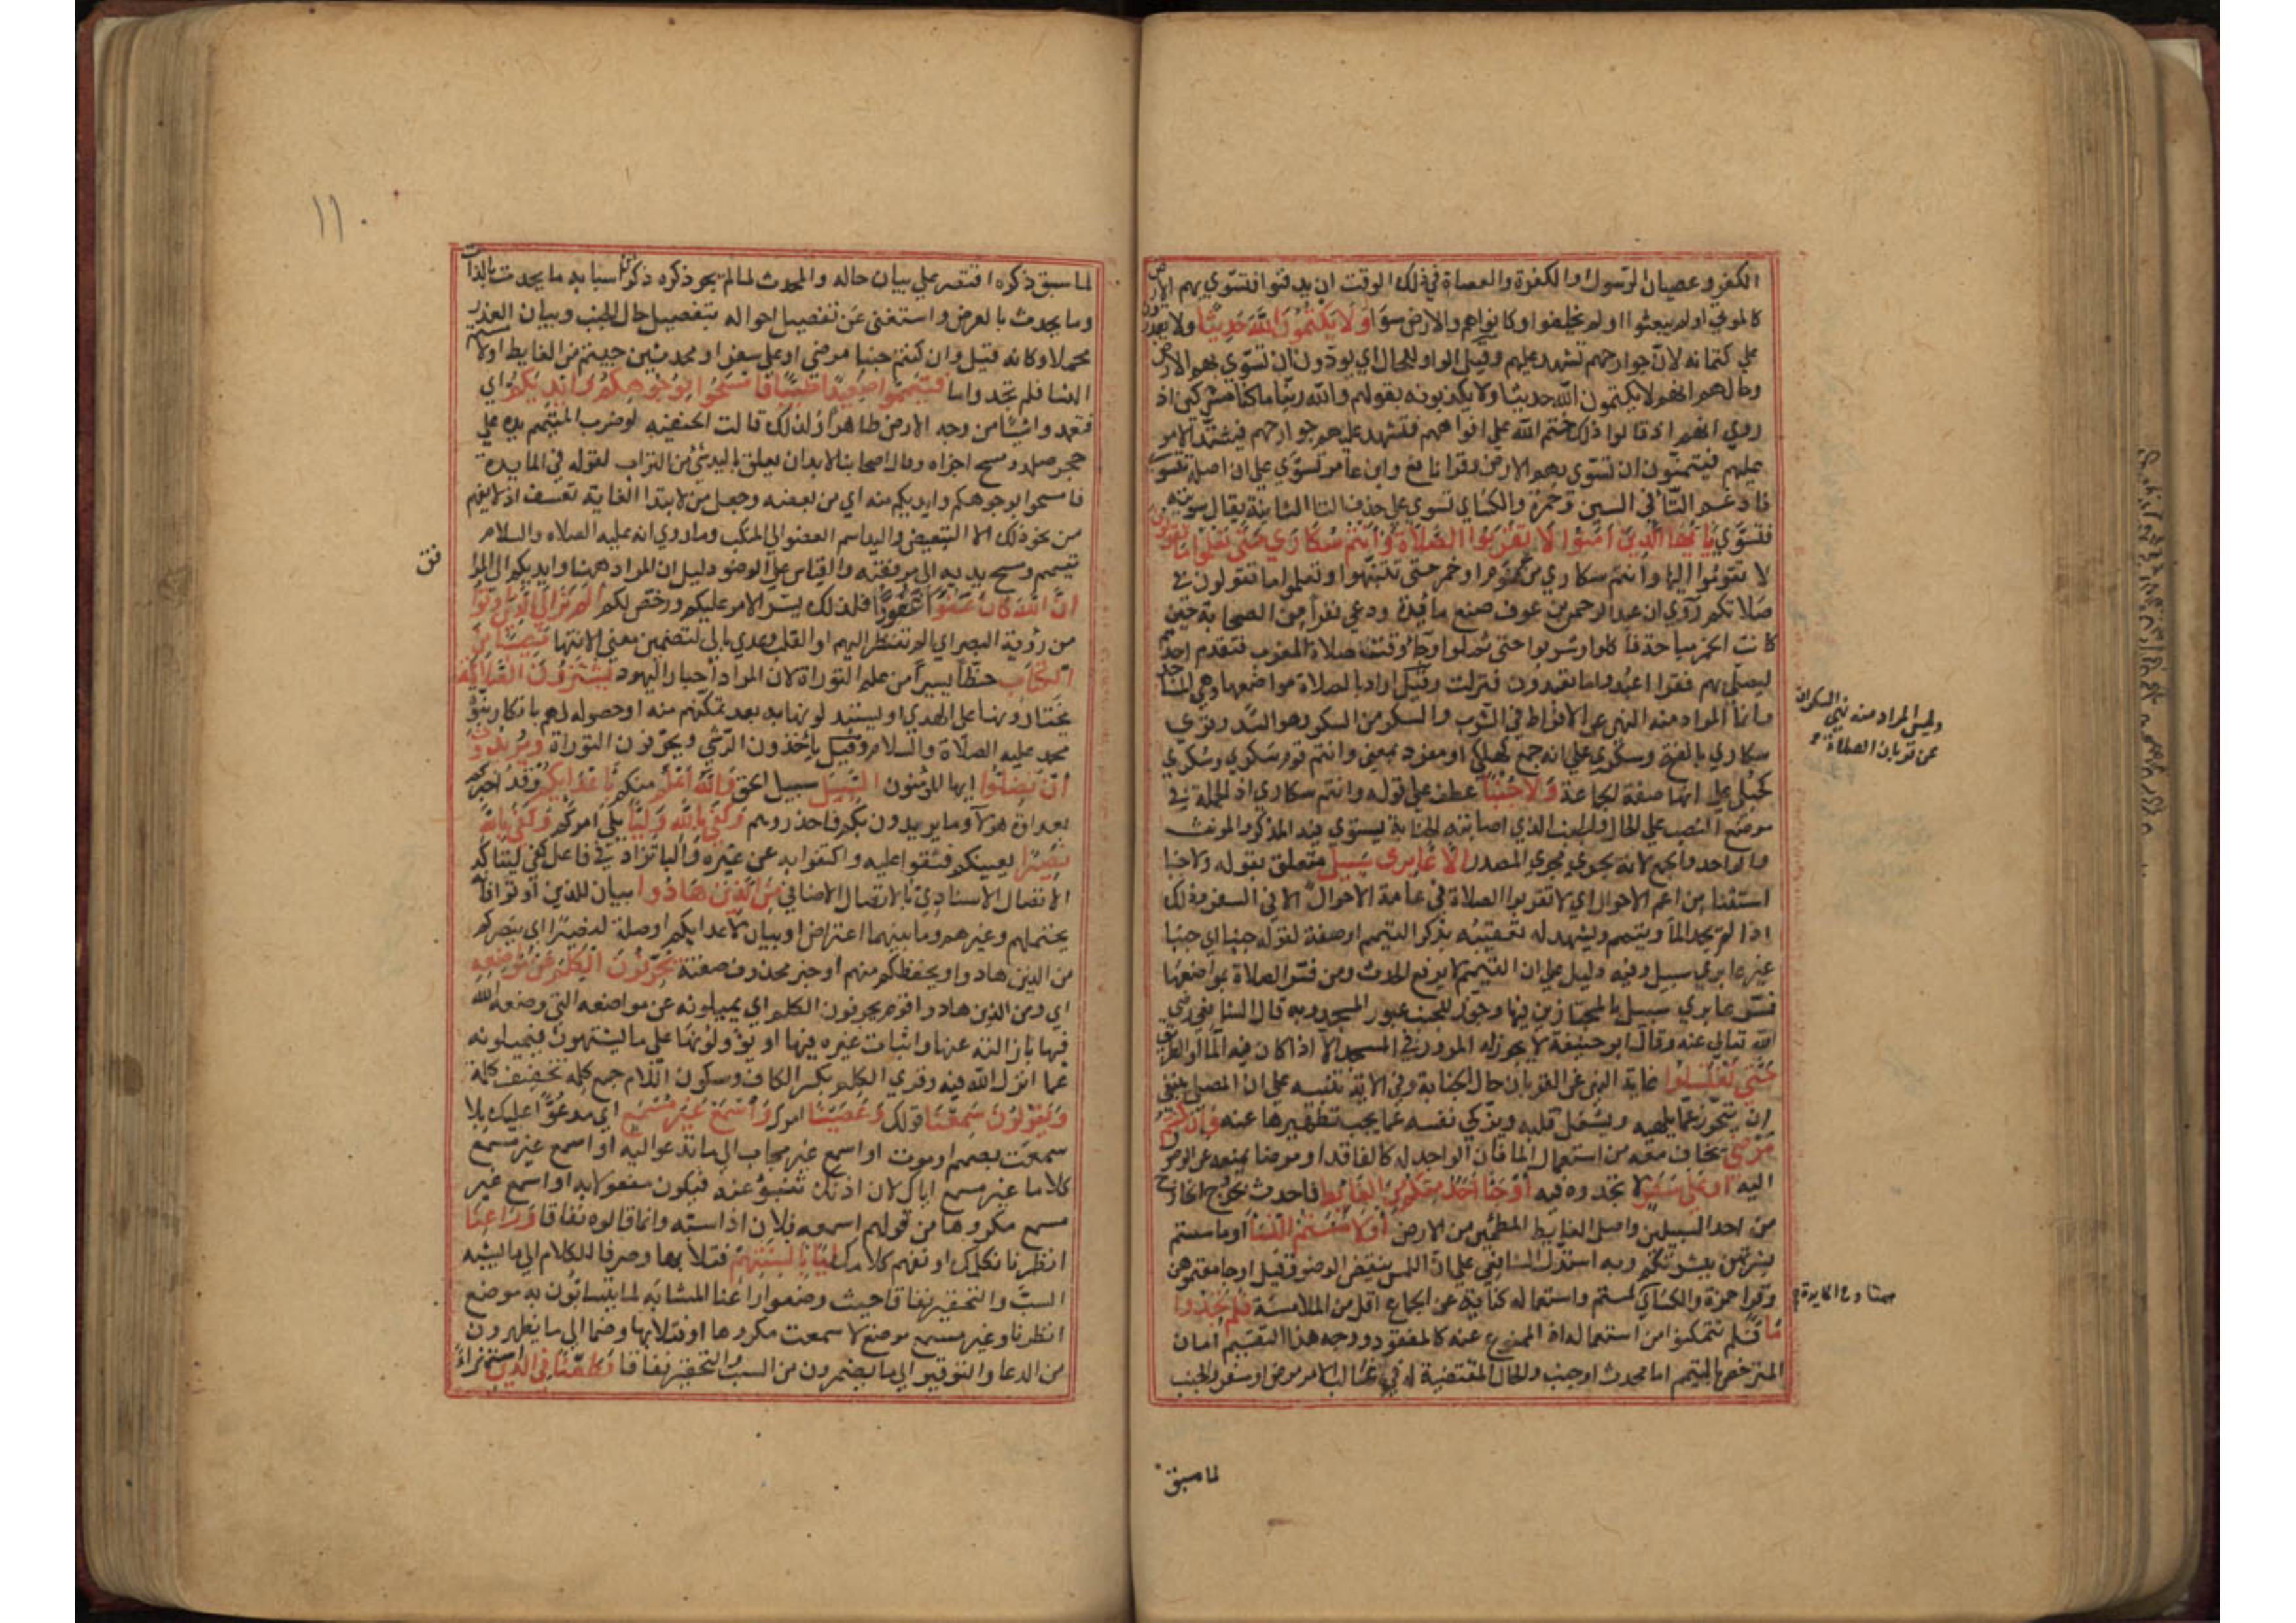 الكفر وعصيان الرسول او الكفرة والعصاة في ذلك الوقت ان يدفنوا فتسوي بهم الارض
كالموتي او لم يبعثوا او لم يخلقوا وكانوا هم والارض سوآ وَلَا يَكْتُمُونَ اللَّهَ حَدِيثًا ولا يقدرون
علي كتمانه لان جوارحهم تشهد عليهم وقيل الواو للحال اي يودون ان تسوي بهم الارض
وحالهم انهم لا يكتمون الله حديثا ولا يكذبونه بقولهم والله ربنا ما كنا مشركين اذ
روي انهم اذ قالوا ذلك ختم الله علي افواههم فتشهد عليهم جوارحهم فيشتد الامر
عليهم فيتمنون ان تسوي بهم الارض وقرا نافع وابن عامر تسوي علي ان اصله تتسوي
فادغم التآ في السين وحمزة والكساي تسوي علي حذف التا الثانية يقال سويته
فتسوي يَا أَيُّهَا الَّذِينَ آمَنُوا لَا تَقْرَبُوا الصَّلَاةَ وَأَنْتُمْ سُكَارَي حَتَّى تَعْلَمُوا مَا تَقُولُونَ
لا تقوموا اليها وانتم سكاري من نوم او خمر حتي تنتبهوا وتعلموا ما تقولون في
صلاتكم روي ان عبد الرحمن بن عوف صنع مأدبة ودعي نفرا من الصحابة حين
كانت الخمر مباحة فاكلوا وشربوا حتي ثملوا وجآ وقت صلاة المغرب فتقدم احدهم
ليصلي بهم فقرا اعبد ما تعبدون فنزلت وقيل اراد بالصلاة مواضعها وهي المساجد
وليس المراد منه نهي السكران
عن قربان الصلاة
وانما المراد منه النهي عن الافراط في الشرب والسكر من السكر وهو السد وقري
سكاري بالفتح وسكري علي انه جمع كهلكي او مفرد بمعني وانتم قوم سكري وسكري
كحبلي علي انها صفة الجماعة وَلَا جُنُبًا عطف علي قوله وانتم سكاري اذ الجملة في
موضع النصب علي الحال والجنب الذي اصابته الجنابة يستوي فيه المذكر والمونث
والواحد والجمع لانه يجري مجري المصدر إِلَّا عَابِرِي سَبِيلٍ متعلق بقوله ولا جنبا
استثنا من اعم الاحوال اي لا تقربوا الصلاة في عامة الاحوال الا في السفر وذلك
اذا لم يجد المآ ويتمم ويشهد له تعقيبه بذكر التيمم او صفة لقوله جنبا اي جنبا
غير عابري سبيل وفيه دليل علي ان التيمم لا يرفع الحدث ومن فسر الصلاة بمواضعها
فسر عابري سبيل بالمجتازين فيها وجوز للجنب عبور المسجد وبه قال الشافعي رضي
الله تعالي عنه وقال ابو حنيفة لا يجوز له المرور في المسجد الا اذا كان فيه المآ او الطريق
حَتَّى تَغْتَسِلُوا غاية النهي عن القربان حال الجنابة وفي الاية تنبيه علي ان المصلي ينبغي
ان يتحرز عما يلهيه ويشغل قلبه ويزكي نفسه عما يجب تطهيرها عنه وَإِنْ كُنْتُمْ
مَرْضَى يخاف معه من استعمال الما فان الواجد له كالفاقد او مرضا يمنعه عن الوصول
اليه أَوْ عَلَى سَفَرٍ لا تجدوه فيه أَوْ جَآ أَحَدٌ مِنْكُمْ مِنَ الْغَائِطِ فاحدث بخروج الخارج
من احد السبيلين واصل الغايط المطمئن من الارض أَوْ لَامَسْتُمُ النِّسَا او ماسستم
بشرتهن ببشرتكم وبه استدل الشافعي علي ان اللمس ينقض الوضو وقيل او جامعتموهن
وقرا حمزة والكساي لمستم واستعماله كناية عن الجماع اقل من الملامسة فَلَمْ تَجِدُوا
هنا وفي المايدة
مَا فلم تتمكنوا من استعماله اذ الممنوع عنه كالمفقود ووجه هذا التقسيم ان
المترخص بالتيمم اما محدث او جنب والحال المقتضية له في غالب الامر مرض او سفر والجنب
لما سبق
١١٠
لما سبق ذكره اقتصر علي بيان حاله والمحدث لما لم يجر ذكره ذكر من اسبابه ما يحدث بالذات
وما يحدث بالعرض واستغني عن تفصيل احواله بتفصيل حال الجنب وبيان العذر
مجملا وكانه قيل وان كنتم جنبا مرضي او علي سفر او محدثين جيتم من الغايط او لامستم
النسا فلم تجدوا ما فَتَيَمَّمُوا صَعِيدًا طَيِّبًا فَامْسَحُوا بِوُجُوهِكُمْ وَأَيْدِيكُمْ اي
فتعمدوا شيئا من وجه الارض طاهرا ولذلك قالت الحنفيه لو ضرب المتيمم يده علي
حجر صلد ومسح اجزاه وقال اصحابنا لا بد ان يعلق باليد شي من التراب لقوله في المايدة
فامسحوا بوجوهكم وايديكم منه اي من بعضه وجعل من لابتدا الغاية تعسف اذ لا يفهم
من نحو ذلك الا التبعيض واليد اسم العضو الي المنكب وما روي انه عليه الصلاه والسلام
تيمم ومسح يديه الي مرفقيه والقياس علي الوضو دليل ان المراد ههنا وايديكم الي المرا
فق
إِنَّ اللَّهَ كَانَ عَفُوًّا غَفُورًا فلذلك يسر الامر عليكم ورخص لكم أَلَمْ تَرَ إِلَى الَّذِينَ أُوتُوا
من رؤية البصر اي الم تنظر اليهم او القلب وعدي بالي لتضمين معني الانتها نَصِيبًا مِنَ
الْكِتَابِ حظا يسيرا من علم التوراة لان المراد احبار اليهود يَشْتَرُونَ الضَّلَالَةَ
يختارونها علي الهدي او يستبدلونها به بعد تمكنهم منه او حصوله لهم بانكار نبوة
محمد عليه الصلاة والسلام وقيل ياخذون الرشي ويحرفون التوراة وَيُرِيدُونَ
أَنْ تَضِلُّوا ايها المومنون السَّبِيلَ سبيل الحق وَاللَّهُ أَعْلَمُ منكم بِأَعْدَائِكُمْ وقد اخبركم
بعداوة هولآ وما يريدون بكم فاحذروهم وَكَفَى بِاللَّهِ وَلِيًّا يلي امركم وَكَفَى بِاللَّهِ
نَصِيرًا يعينكم فثقوا عليه واكتفوا به عن غيره والبا تزاد في فاعل كفي ليتاكد
الاتصال الاسنادي بالاتصال الاضافي مِنَ الَّذِينَ هَادُوا بيان للذين اوتوا فانه
يحتملهم وغيرهم وما بينهما اعتراض او بيان لاعدايكم او صلة لنصيرا اي ينصركم
من الذين هادوا ويحفظكم منهم او خبر محذوف صفته يُحَرِّفُونَ الْكَلِمَ عَنْ مَوَاضِعِهِ
اي ومن الذين هادوا قوم يحرفون الكلم اي يميلونه عن مواضعه التي وضعه الله
فيها بازالته عنها واثبات غيره فيها او يؤولونها علي ما يشتهون فيميلونه
عما انزل الله فيه وقري الكلم بكسر الكاف وسكون اللام جمع كلمه تخفيف كلمة
وَيَقُولُونَ سَمِعْنَا قولك وَعَصَيْنَا امرك وَاسْمَعْ غَيْرَ مُسْمَعٍ اي مدعوا عليك بلا
سمعت بصمم او موت او اسمع غير مجاب الي ما تدعو اليه او اسمع غير مسمع
كلاما غير مسمع اياك لان اذنك تنبو عنه فيكون مفعولا به او اسمع غير
مسمع مكروها من قولهم اسمعه فلان اذا سبه وانما قالوه نفاقا وَرَاعِنَا
انظرنا نكلمك او نفهم كلامك لَيًّا بِأَلْسِنَتِهِمْ فتلا بها وصرفا للكلام الي ما يشبه
السب والتحقير نفاقا حيث وضعوا راعنا المشابه لما يتسابون به موضع
انظرنا وغير مسمع موضع لا سمعت مكروها او فتلا بها وضما الي ما يظهرون
من الدعا والتوقير الي ما يضمرون من السب والتحقير نفاقا وَطَعْنًا فِي الدِّينِ استهزاء